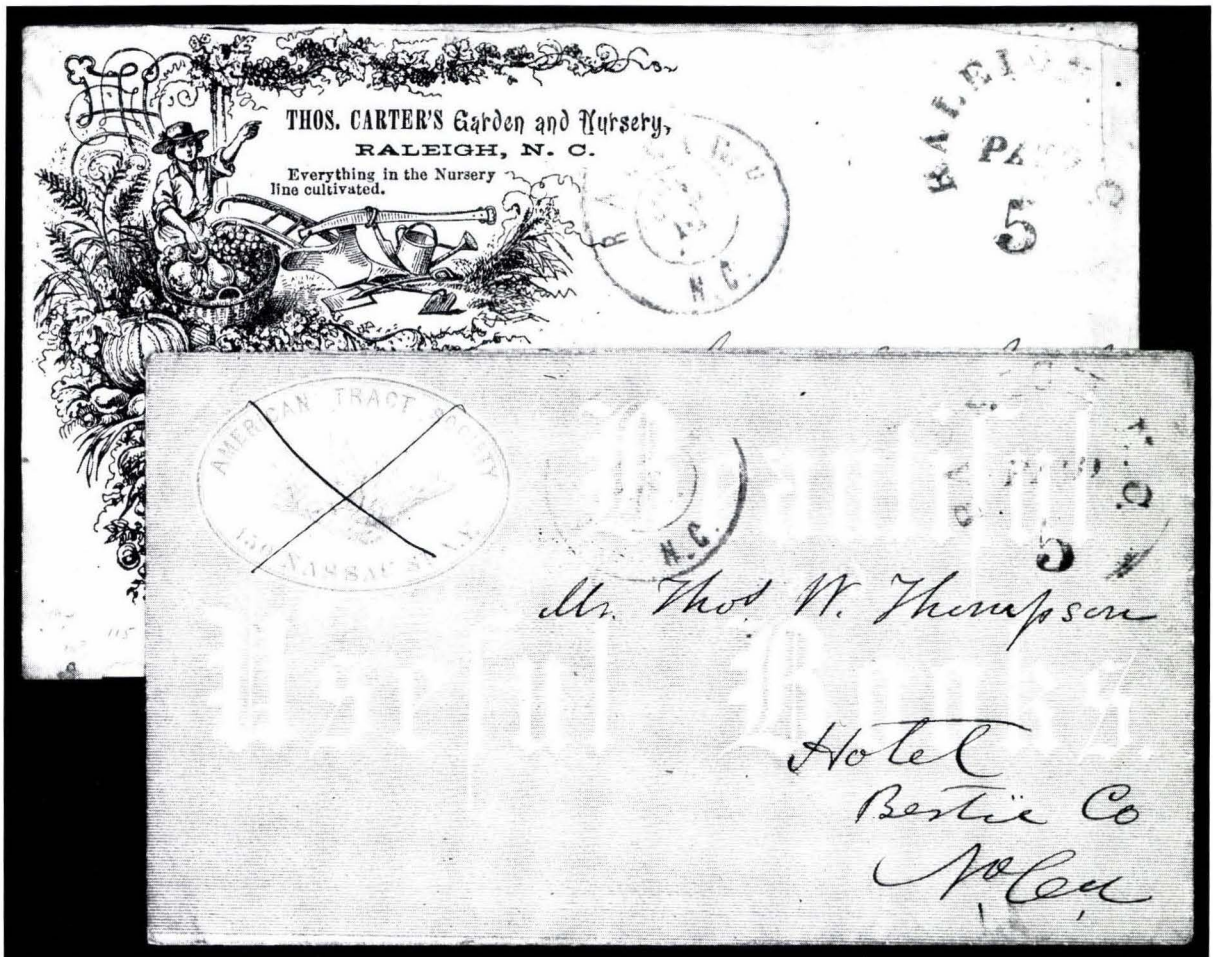 THOS. CARTER'S Garden and Nursery,
RALEIGH, N. C.
Everything in the Nursery
line cultivated.
RALEIGH
N.C.
RALEIGH
PAID
5
115
AMERICAN TRACT SOCIETY
150 NASSAU ST. N.Y.
N.C.
PAID
5
Beautiful
Mr. Thos W. Thompson
Useful Books.
Hotel
Bertie Co
No Ca